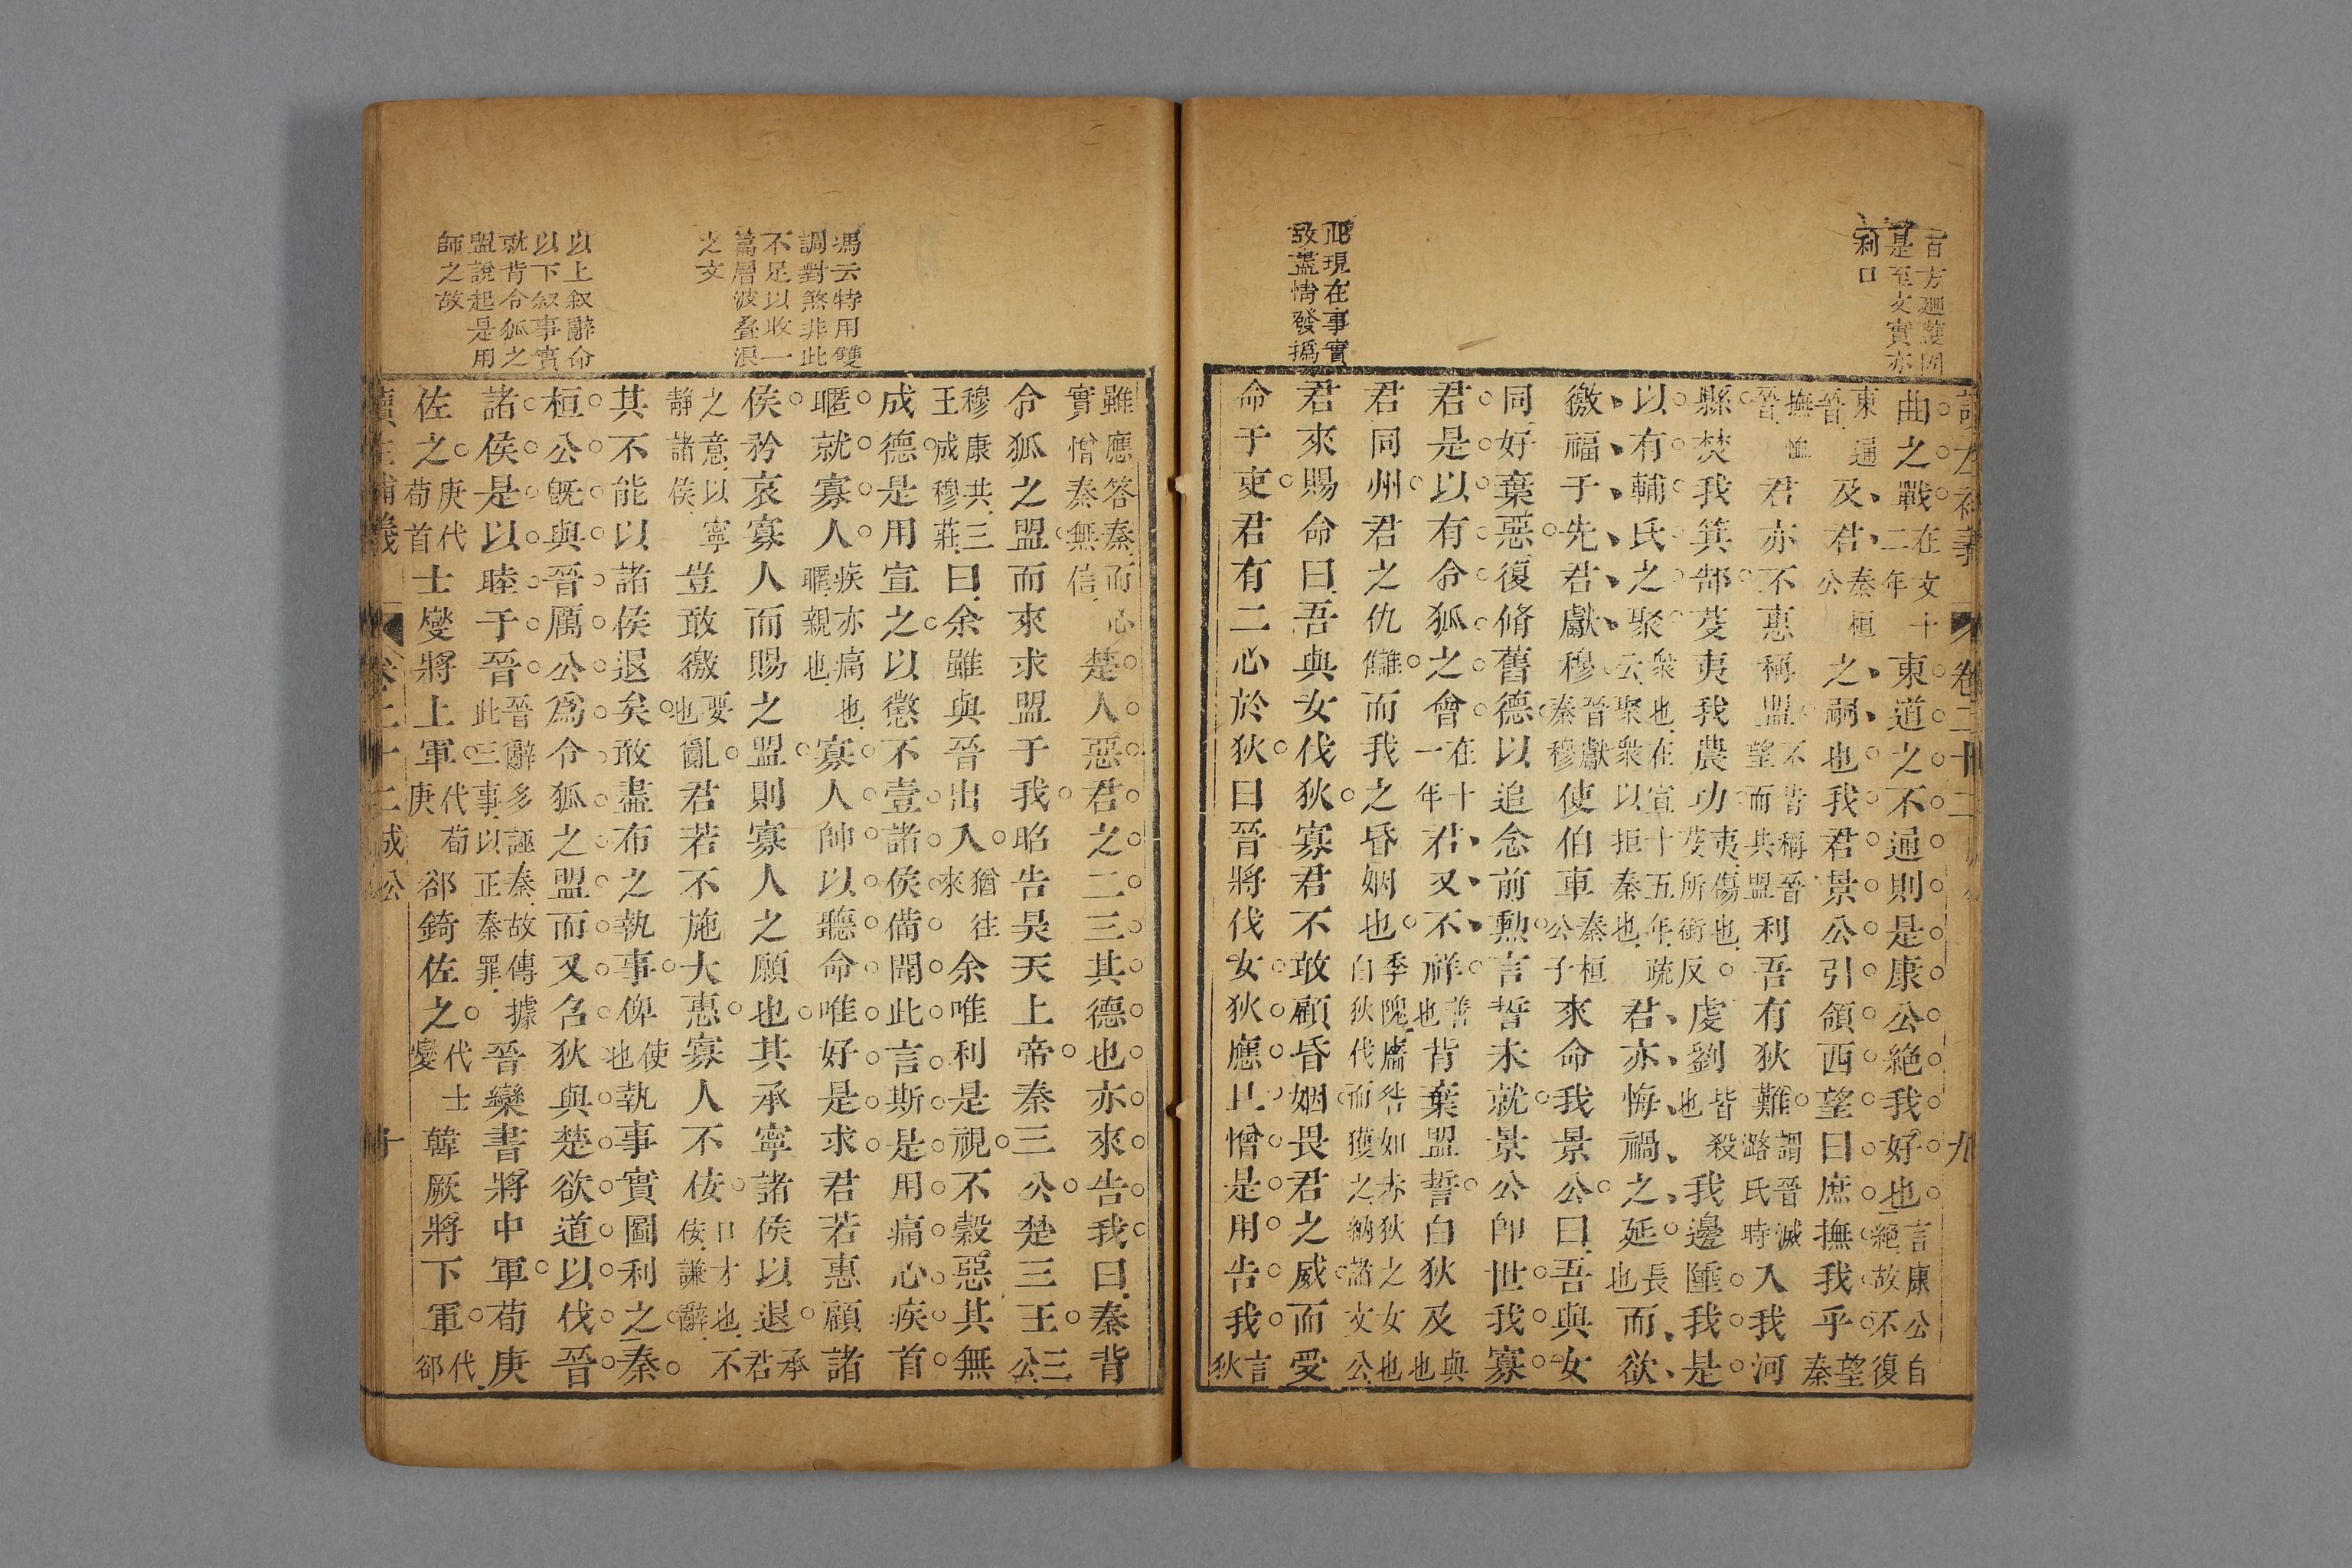 百方廻護固
是至文實亦
利口
曲之戰在文十二年東道之不通則是康公絕我好也言康公自絕故不復
東通晉及君秦桓公之嗣也我君景公引領西望曰庶撫我乎望秦
撫恤晉君亦不惠稱盟不肯稱晉望而共盟利吾有狄難謂晉滅潞氏時入我河
縣焚我箕郜芟夷我農功夷傷也芟所銜反虔劉皆殺也我邊陲我是
以有輔氏之聚衆也在宣十五年疏云聚衆以拒秦也君亦悔禍之延長也而欲
徼福于先君獻穆晉獻秦穆使伯車秦桓公子來命我景公曰吾與女
同好棄惡復脩舊德以追念前勲言誓未就景公卽世我寡
君是以有令狐之會在十一年君又不祥善也背棄盟誓白狄及與也
君同州君之仇讎而我之昏姻也季隗廧咎如赤狄之女也白狄伐而獲之納諸文公
此現在事實
故盡情發撝
君來賜命曰吾與女伐狄寡君不敢顧昏姻畏君之威而受
命于吏君有二心於狄曰晉將伐女狄應且憎是用告我言狄
雖應答秦而心實憎秦無信楚人惡君之二三其德也亦來告我曰秦背
令狐之盟而來求盟于我昭告昊天上帝秦三公楚三王三公
穆康共三王成穆莊曰余雖與晉出入猶往來余唯利是視不榖惡其無
成德是用宣之以懲不壹諸侯備聞此言斯是用痛心疾首
暱就寡人疾亦痛也暱親也寡人帥以聽命唯好是求君若惠顧諸
馮云特用雙
調對煞非此
不足以收一
篇層波疊浪
之文
侯矜哀寡人而賜之盟則寡人之願也其承寧諸侯以退承君不
之意以寧靜諸侯豈敢徼要也亂君若不施大惠寡人不佞口才也佞謙辭
其不能以諸侯退矣敢盡布之執事俾使也執事實圖利之秦
以上叙辭命
以下叙事實
就背令狐之
盟說起是用
師之故
桓公旣與晉厲公爲令狐之盟而又召狄與楚欲道以伐晉
諸侯是以睦于晉晉辭多誣秦故傳據此三事以正秦罪晉欒書將中軍荀庚
佐之庚代荀首士燮將上軍代荀庚郤錡佐之代士燮韓厥將下軍代郤
讀左補義 卷二十二 成公 十